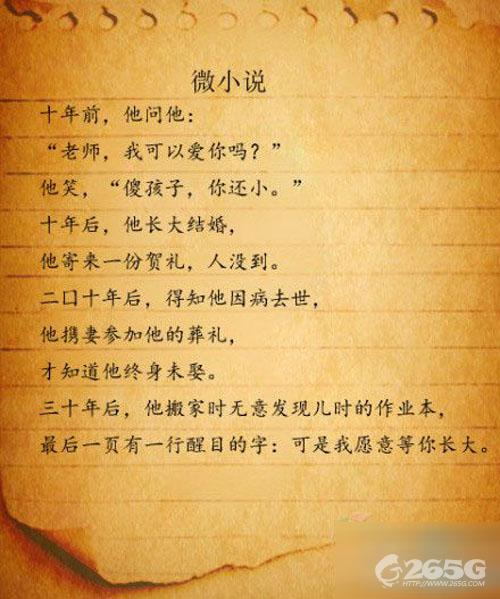 微小说
十年前，他问他：
“老师，我可以爱你吗？”
他笑，“傻孩子，你还小。”
十年后，他长大结婚，
他寄来一份贺礼，人没到。
二〇十年后，得知他因病去世，
他携妻参加他的葬礼，
才知道他终身未娶。
三十年后，他搬家时无意发现儿时的作业本，
最后一页有一行醒目的字：可是我愿意等你长大。
265G
HTTP://WWW.265G.COM